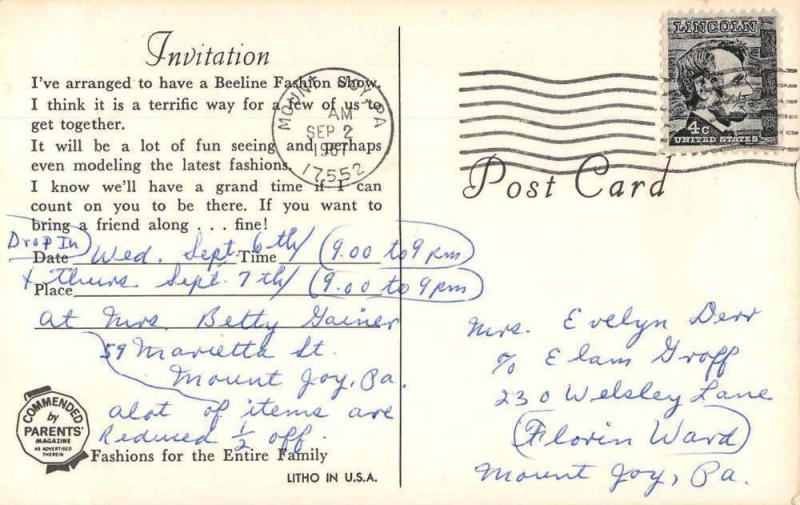 Invitation
I've arranged to have a Beeline Fashion Show.
I think it is a terrific way for a few of us to
get together.
It will be a lot of fun seeing and perhaps
even modeling the latest fashions.
I know we'll have a grand time if I can
count on you to be there. If you want to
bring a friend along . . . fine!
Drop In
Date Wed. Sept. 6th/ Time (9.00 to 9 pm)
+ Thurs. Sept. 7th/ (9.00 to 9 pm)
Place
at Mrs. Betty Gainer
59 Marietta St.
Mount Joy, Pa.
alot of items are
Reduced ½ off.
Fashions for the Entire Family
LITHO IN U.S.A.
COMMENDED
by
PARENTS'
MAGAZINE
AS ADVERTISED
THEREIN
MOUNT JOY, PA
AM
SEP 2
1967
17552
LINCOLN
4c
UNITED STATES
Post Card
Mrs. Evelyn Derr
% Elam Groff
230 Welsley Lane
(Florin Ward)
Mount Joy, Pa.